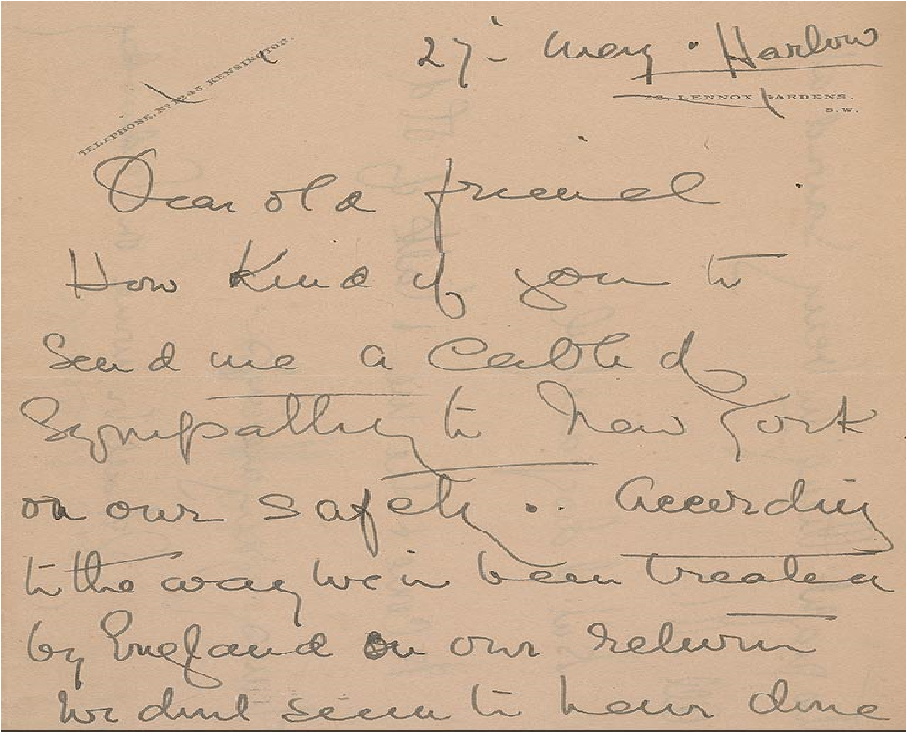 TELEPHONE, No KENSINGTON.
27th May . Harlow
LENNOX GARDENS.
S.W.
Dear old friend .
How kind of you to
send me a cable of
sympathy to New York
on our safety . . According
to the way we've been treated
by England on our return
we didnt seem to have done